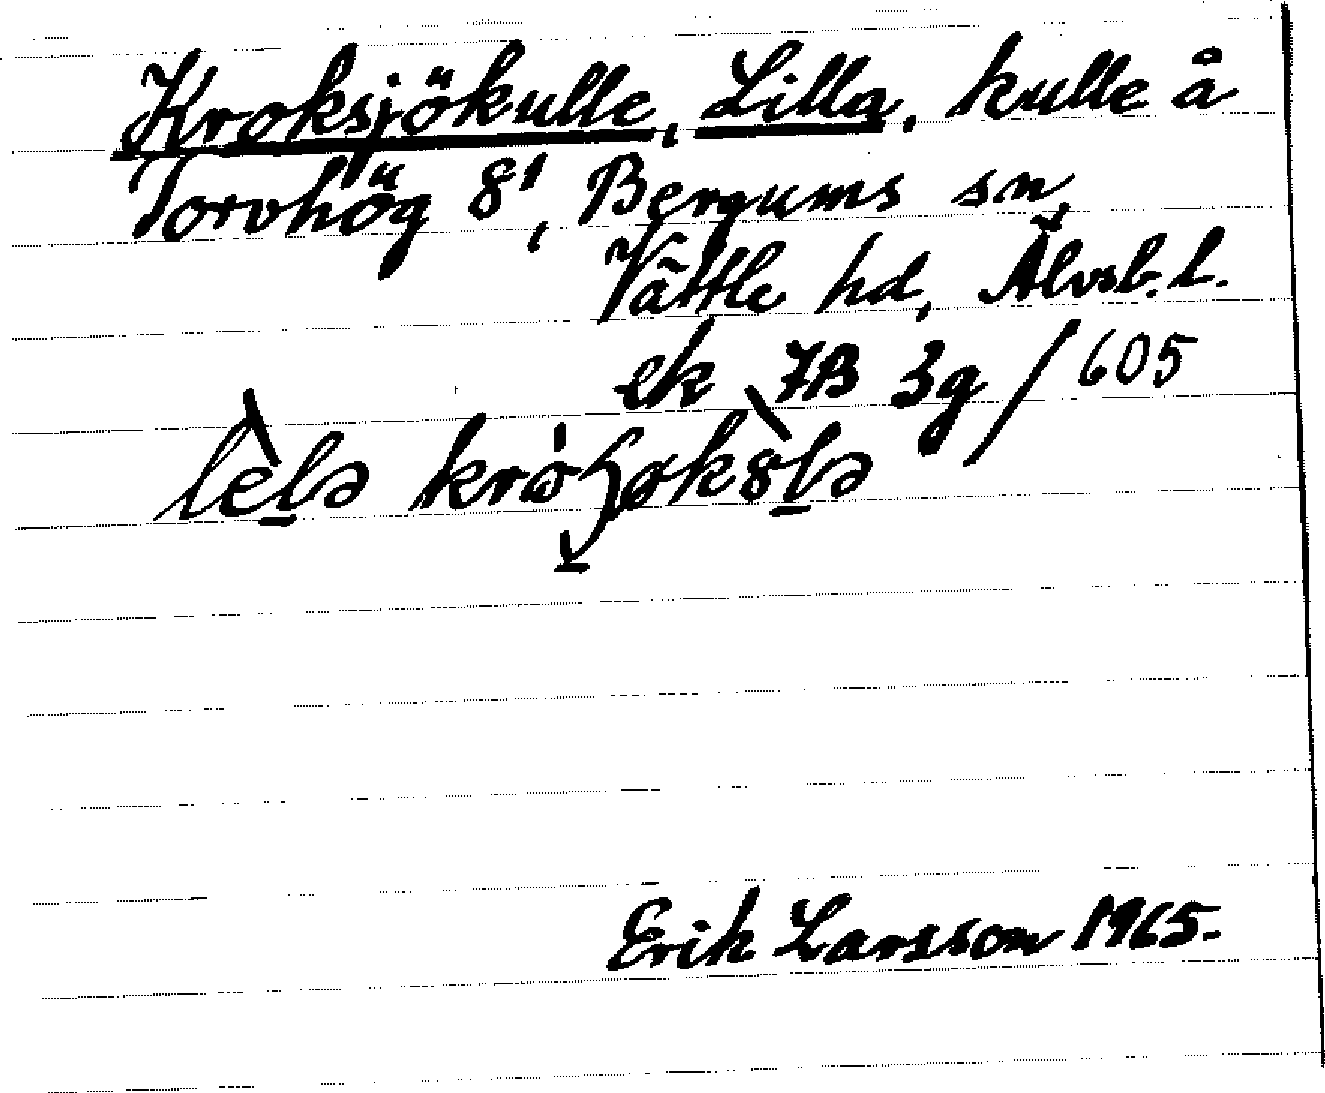 Kroksjökulle, Lilla, kulle å
Torvhög 8¹, Bergums sn,
Vättle hd, Älvsb. l.
ek 7B 3g / 605
Erik Larsson 1965.